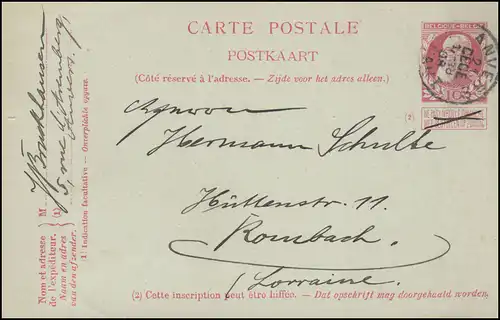 CARTE POSTALE
POSTKAART
(Côté réservé à l'adresse. — Zijde voor het adres alleen.)
BELGIQUE · BELGIË
10
ANVERS
Hermann Schulte
(2)
Hüttenstr. 11.
Rombach.
(Lorraine.
(2) Cette inscription peut être biffée. — Dat opschrift mag doorgehaald worden.
Nom et adresse de l'expéditeur.
Naam en adres van den afzender.
M
(1)
5, rue
Anvers.
(1) Indication facultative — Onverplichte opgave.